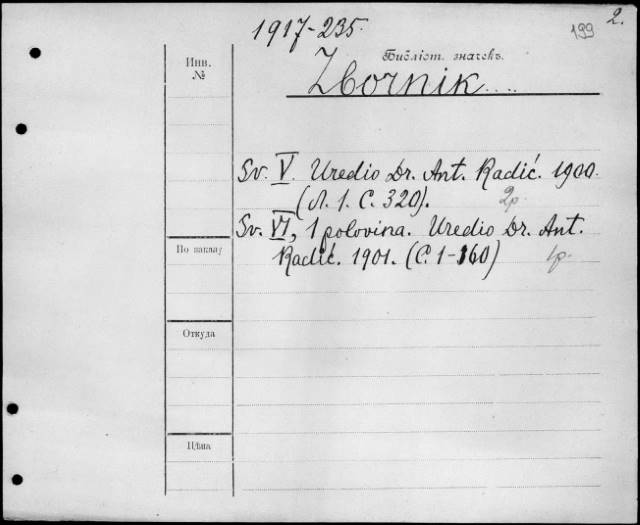 1917-235.
199
2.
Инв. №
Библіот. значекъ.
Zbornik....
Sv. V. Uredio Dr. Ant. Radić. 1900.
(Л. 1. C. 320). 2p.
Sv. VI, 1 polovina. Uredio Dr. Ant.
Radić. 1901. (C. 1-160) 1p.
По заказу
Откуда
Цѣна